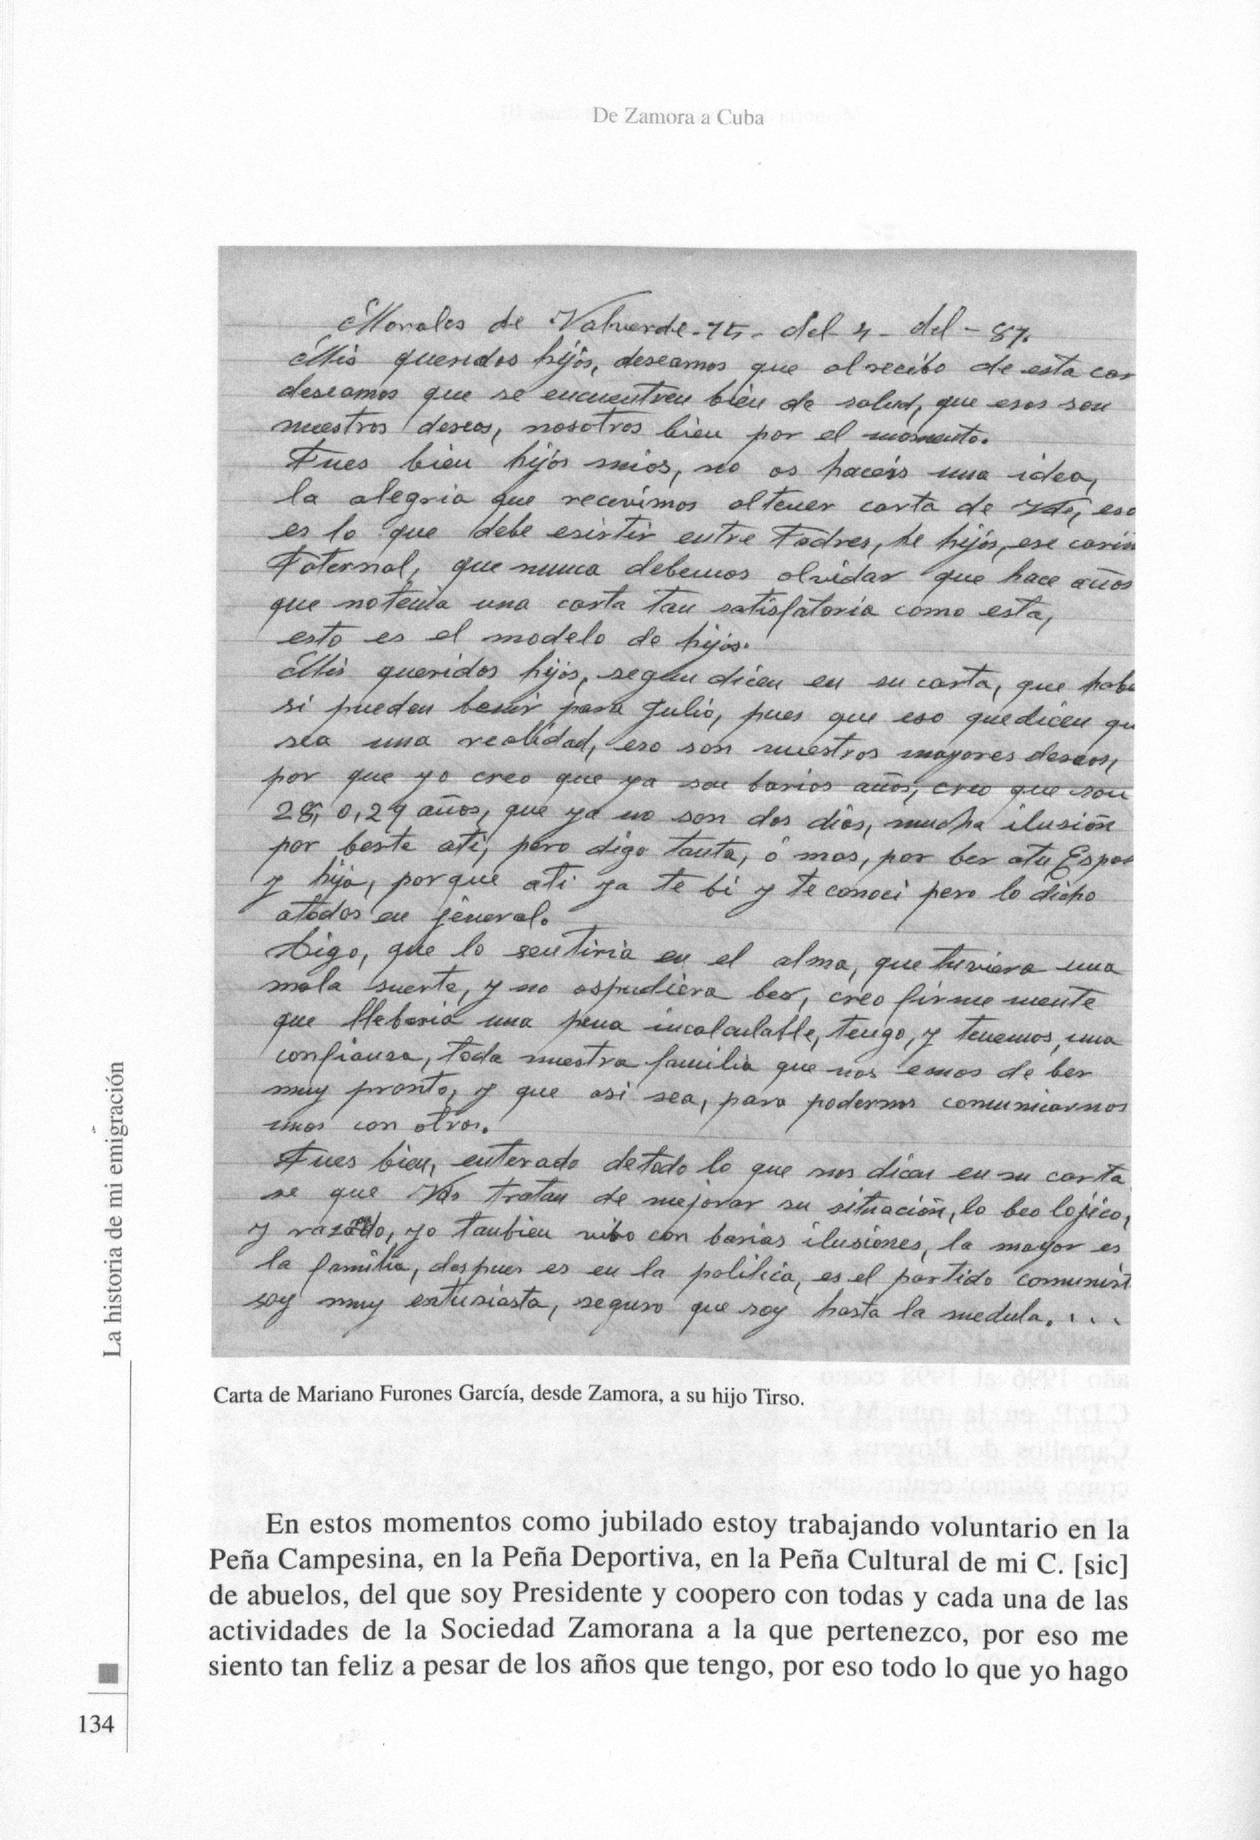 De Zamora a Cuba
Morales de Valverde-15- del-4- del-87.
Mis queridos hijos, deseamos que al recibo de esta car
deseamos que se encuentren bien de salud, que esos son
nuestros deseos, nosotros bien por el momento.
Pues bien hijos mios, no os haceis una idea,
la alegria que recivimos al tener carta de Vds, eso
es lo que debe esistir entre Padres, he hijos, ese cariñ
Paternal, que nunca debemos olvidar que hace años
que no tenia una carta tan satisfatoria como esta,
esto es el modelo de hijos.
Mis queridos hijos, segun dicen en su carta, que haber
si pueden benir para Julio, pues que eso que dicen qu
sea una realidad, eso son nuestros mayores deseos,
por que yo creo que ya son barios años, creo que son
28, o, 29 años, que ya no son dos dias, mucha ilusión
por berte ati, pero digo tanta, ó mas, por ber atu Espos
y hijo, porque ati ya te bi y te conoci pero lo dicho
atodos en jeneral.
Digo, que lo sentiria en el alma, que tuviera una
mala suerte, y no ospudiera ber, creo firmemente
que llebaria una pena incalculable, tengo, y tenemos, una
confianza, toda nuestra familia que nos emos de ber
muy pronto, y que asi sea, para podernos comunicarnos
unos con otros.
Pues bien, enterado detodo lo que nos dicen en su carta
se que Vds tratan de mejorar su situación, lo beo lojico,
y razondo, yo tanbien vibo con barias ilusiones, la mayor es
la familia, despues es en la politica, es el partido comunist
soy muy entusiasta, seguro que soy hasta la medula. . . .
Carta de Mariano Furones García, desde Zamora, a su hijo Tirso.
En estos momentos como jubilado estoy trabajando voluntario en la
Peña Campesina, en la Peña Deportiva, en la Peña Cultural de mi C. [sic]
de abuelos, del que soy Presidente y coopero con todas y cada una de las
actividades de la Sociedad Zamorana a la que pertenezco, por eso me
siento tan feliz a pesar de los años que tengo, por eso todo lo que yo hago
La historia de mi emigración
134